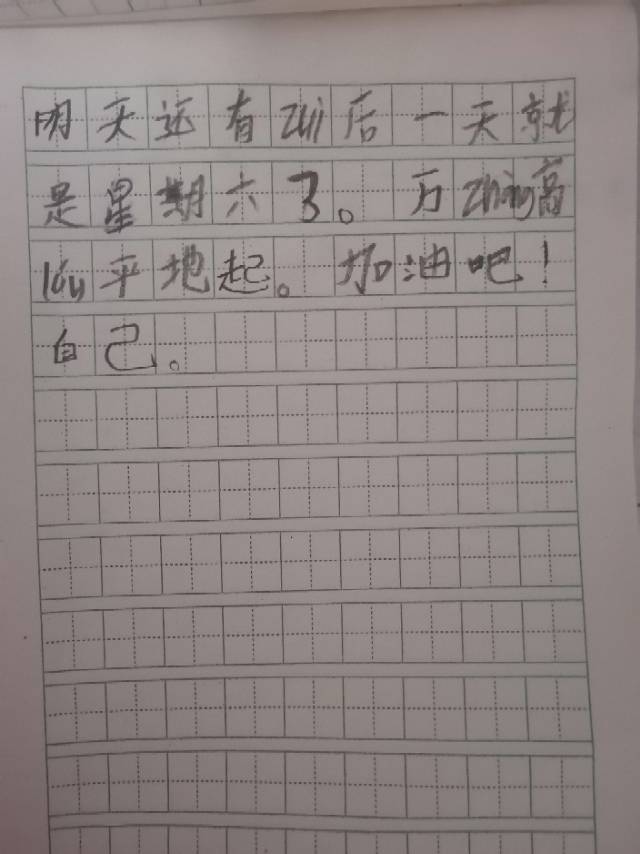 明天还有zuì后一天就
是星期六了。万zhàng高
lóu平地起。加油吧！
自己。